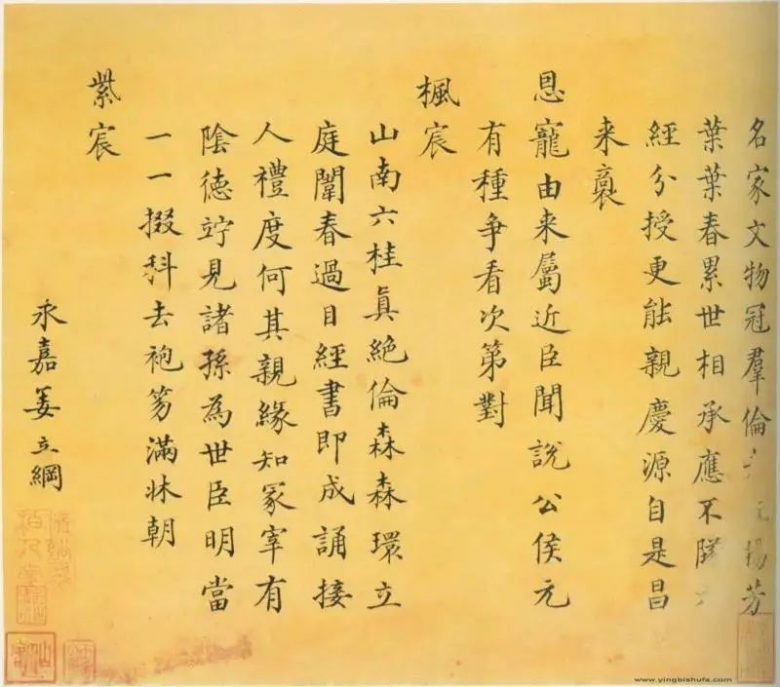 名家文物冠羣倫揚芳
葉葉春累世相承應不隧
經分授更能親慶源自是昌
来裔
恩寵由来屬近臣聞說公侯元
有種争看次第對
楓宸
山南六桂真絶倫森森環立
庭闈春過目經書即成誦接
人禮度何其親緣知冢宰有
陰德竚見諸孫為世臣明當
一一掇科去袍笏滿牀朝
紫宸
永嘉姜立綱
www.yingbishufa.com